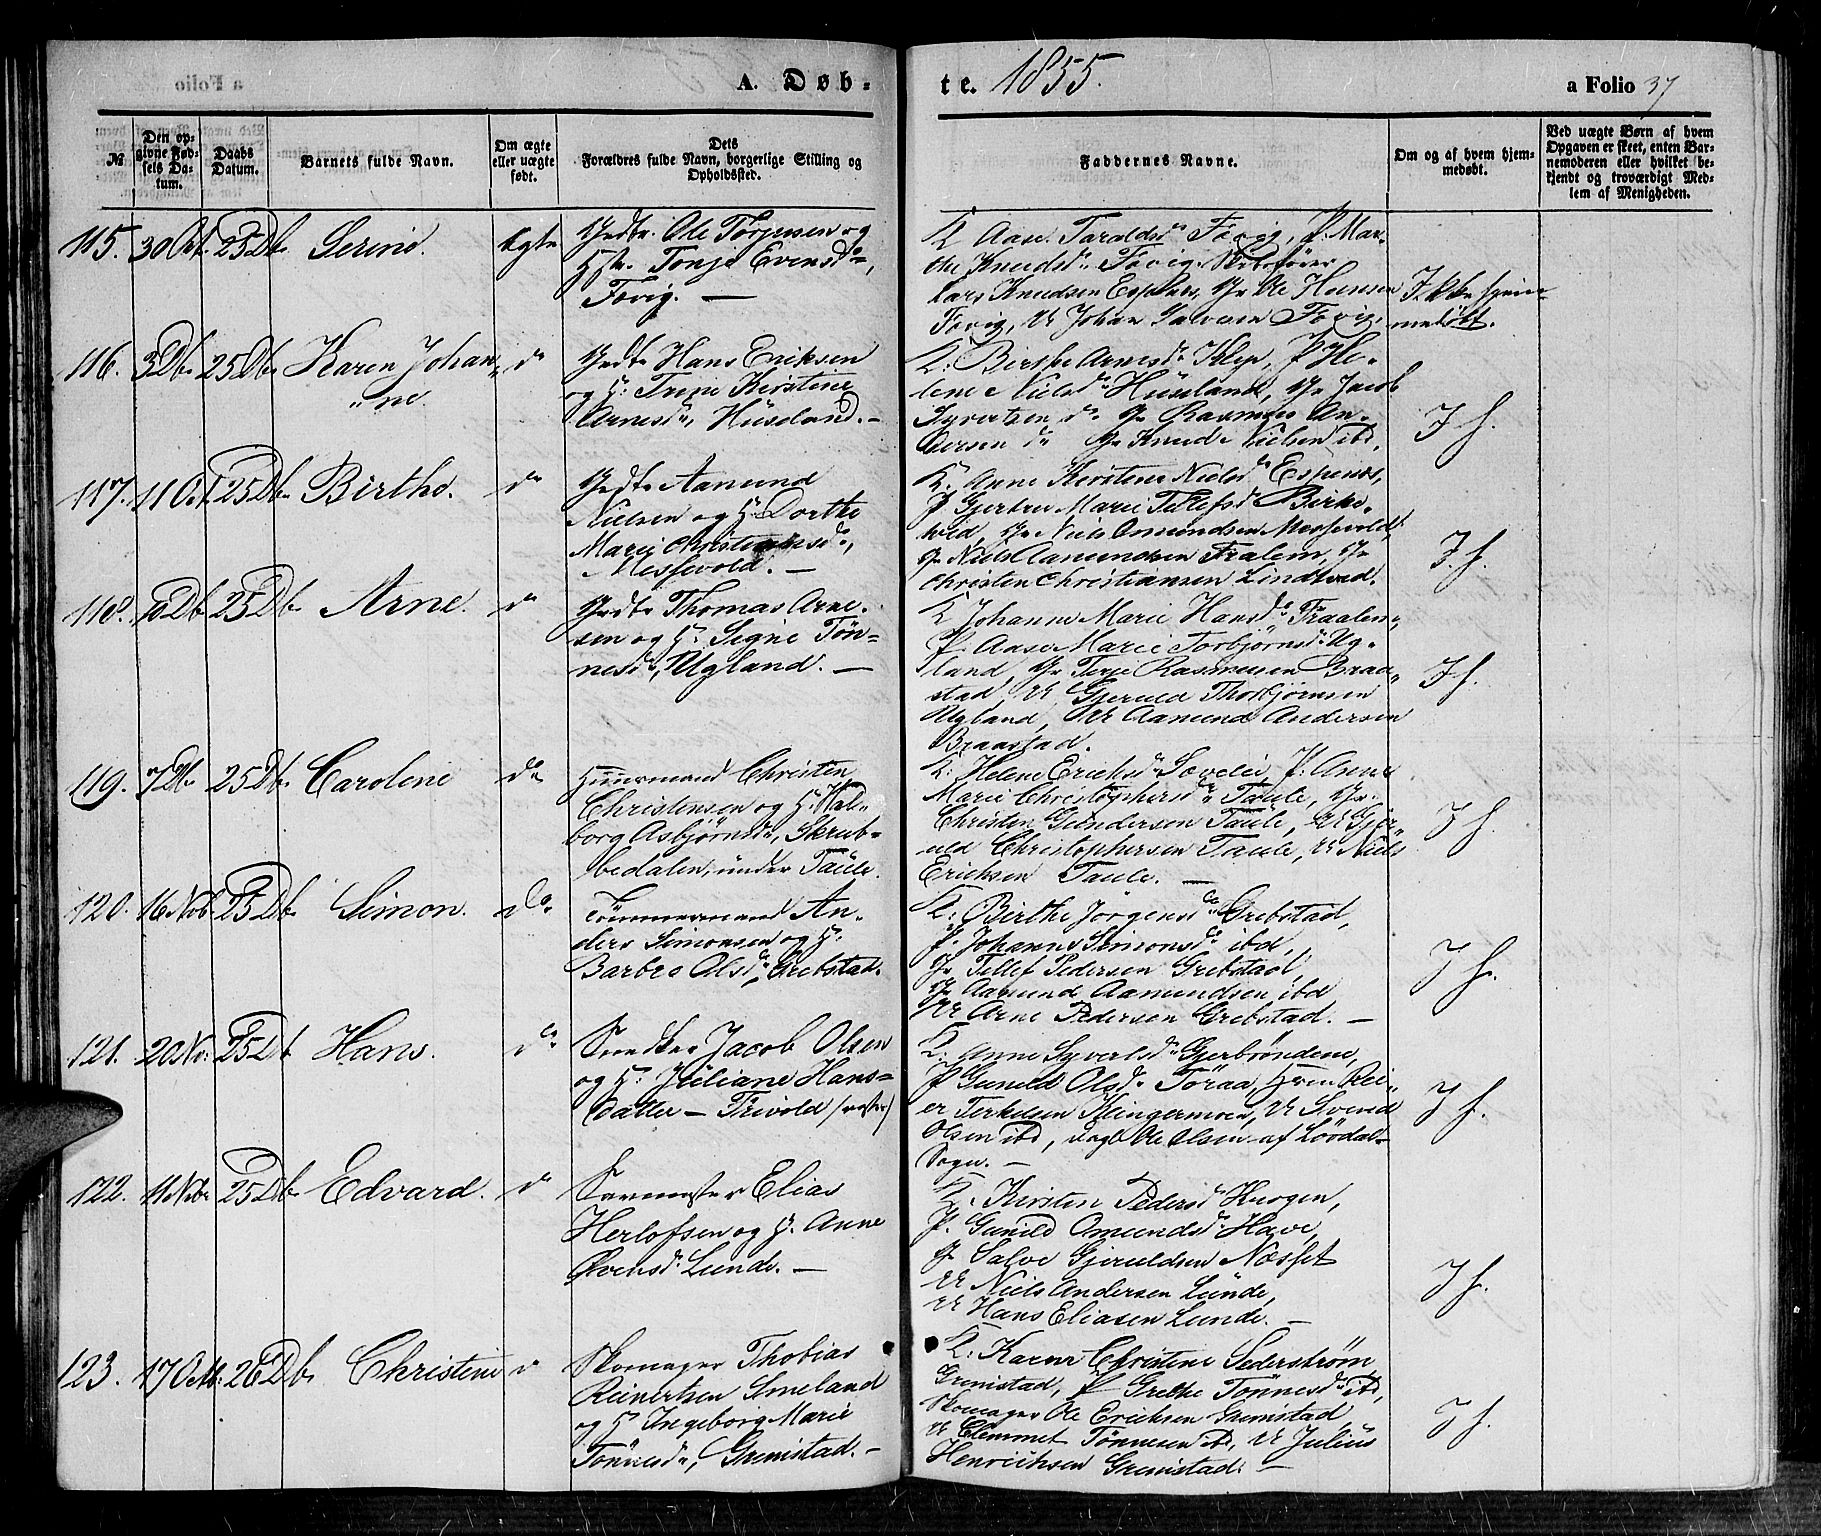 A. Døb-
te. 1855.
a Folio 37
№
Den op-
givne Fød-
sels Da-
tum.
Daabs
Datum.
Barnets fulde Navn.
Om ægte
eller uægte
født.
Dets
Forældres fulde Navn, borgerlige Stilling og
Opholdssted.
Faddernes Navne.
Om og af hvem hjem-
medøbt.
Ved uægte Børn af hvem
Opgaven er skeet, enten Bar-
nemoderen eller hvilket be-
kjendt og troværdigt Med-
lem af Menigheden.
115. 30 Oct. 25 Db. Serine. ægte
Ole Terjesen og
Hstr. Tonje Evensd.,
Fevig. —
K Aase Taraldsd. Fevig, P. Mar-
the Knudsd. Fevig, Skibsfører
Lars Knudsen Espenes, G Ole Hansen
Fevig, U Johan Salvesen Fevig.
Ikke hjem-
medøbt.
116. 3 Db. 25 Db. Karen Johan-
"ne. do
Hans Eriksen
og H. Kirstine
Arnesd., Hüsland. —
K: Birthe Arnesd. Klep, P He-
lene Nielsd. Hüsland, G Jacob
Syvertsen do G Rasmus An-
dersen do G Knud Nielsen ibd.
I h.
117. 11 Oct. 25 Db. Birthe. do
Aamund
Nielsen og H. Dorthe
Marie Christiansd.,
Messevold. —
K. Anne Kirstine Nielsd. Espenes,
P Gjertru Marie Tellefsd. Birke-
ved, G Niels Omundsen Messevold,
G Niels Aamundsen Fralem, G
Christen Christiansen Lindtved.
I. h.
118. Db. 25 Db. Arne. do
Thomas Arne-
sen og H. Segne Tøn-
nesd., Ugland. —
K Johanne Marie Hansd. Fraalem,
P Aase Marie Torbjørnsd. Ug-
land, G Terje Rasmussen Braa-
stad, U Gjeruld Thorbjørnsen
Ugland, U Aamund Andersen
Braastad.
I h.
119. 7 Db. 25 Db. Carolene do
Huusmand Christen
Christensen og H. Wal-
borg Asbjørnsd., Skrub-
bedalen, under Taüle.
K: Helene Eriksd. Søvelie, P: Anne
Marie Christophersd. Taüle, G.
Christen Gundersen Taüle, U Gje-
ruld Christophersen Taule, U Niels
Ericksen Taule. —
I h.
120. 16 Nob. 25 Db. Simon. do
Tømmermand An-
ders Simonsen og H.
Barbro Olsd., Grebstad.
K: Birthe Jørgensd. Grebstad,
P. Johanne Simonsd. ibd,
G Tellef Pedersen Grebstad,
G Aamund Aamundsen ibd
U Arne Pedersen Grebstad. —
I h.
121. 20 No: 25 Db Hans. do
Snedker Jacob Olsen
og H. Jüliane Hans-
datter — Frivold
K: Anne Syvertsd. Gjerbrøndene,
P Gunild Olsd. Töraa, Rei-
er Terkelsen Klingermoen, U Svend
Olsen ibd, Ole Olsen af Løvdal-
Sogn. —
I h.
122. 11 Nobr 25 Db. Edvard. do
Savmester Elias
Herlofsen og H. Anne
Øvensd. Lunde. —
K. Kirsten Pedersd. Haugen,
P. Gunild Omundsd. Have,
G Salve Gjeruldsen Næsset
U Niels Andersen Lünde,
U Hans Eliasen Lunde. —
I h.
123. 17 Octb: 26 Db. Christine do
Skomager Thobias
Reinertsen Smeland
og H Ingeborg Marie
Tönnesd., Grimstad. —
K. Karen Christine Sederstrøm
Grimstad, P Grethe Tönnesd. ibd,
Skomager Ole Ericksen Grimstad
U Clemmet Tönnesen ibd, U Julius
Henrichsen Grimstad. —
I h.